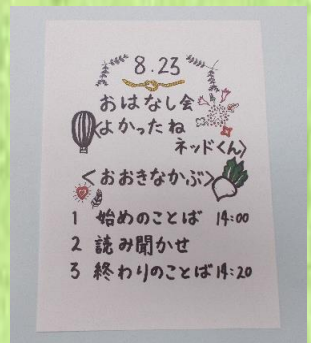 8.23
おはなし会
くよかったね
ネッドくん〉
〈おおきなかぶ〉
1 始めのことば 14:00
2 読み聞かせ
3 終わりのことば 14:20